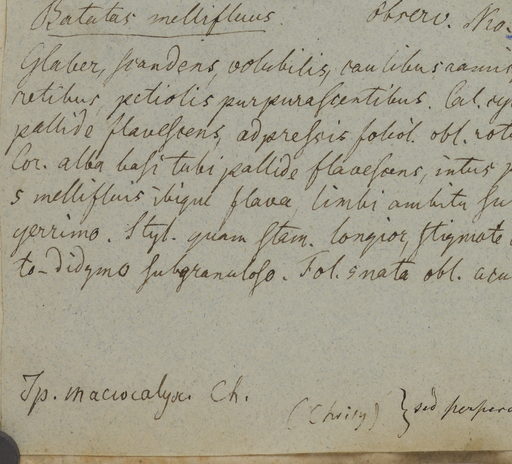 Batatas mellifluus. Observ. No.
Glaber, scandens, volubilis, caulibus
retibus, petiolis purpurascentibus. Cal.
pallide flavescens, adpressis foliol. obl.
Cor. alba basi tubi pallide flavescens, intus
s mellifluis ibique flava, limbi ambitu
gerrimo. Styl. quam stam. longior, stigmate
to-didymo subgranuloso. Fol. 5nata obl.
Ip. macrocalyx. Ch.
(Choisy) } sed